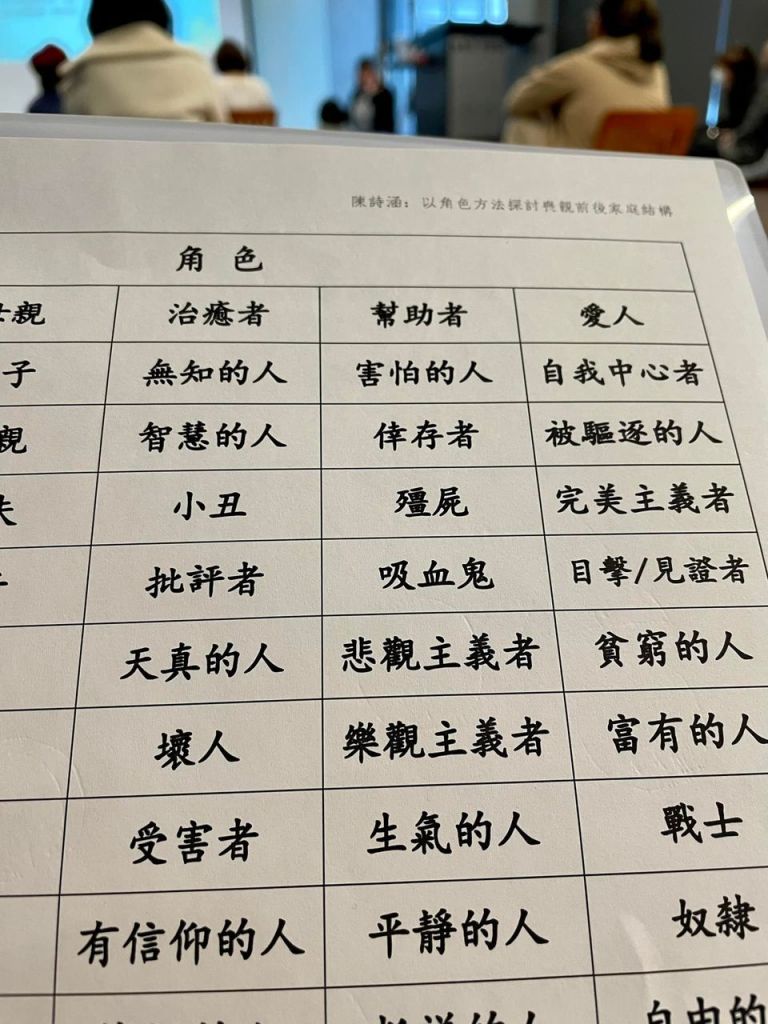 陳詩涵：以角色方法探討喪親前後家庭結構
角 色
母親 治癒者 幫助者 愛人
子 無知的人 害怕的人 自我中心者
親 智慧的人 倖存者 被驅逐的人
夫 小丑 殭屍 完美主義者
批評者 吸血鬼 目擊/見證者
天真的人 悲觀主義者 貧窮的人
壞人 樂觀主義者 富有的人
受害者 生氣的人 戰士
有信仰的人 平靜的人 奴隸
的人 自由的